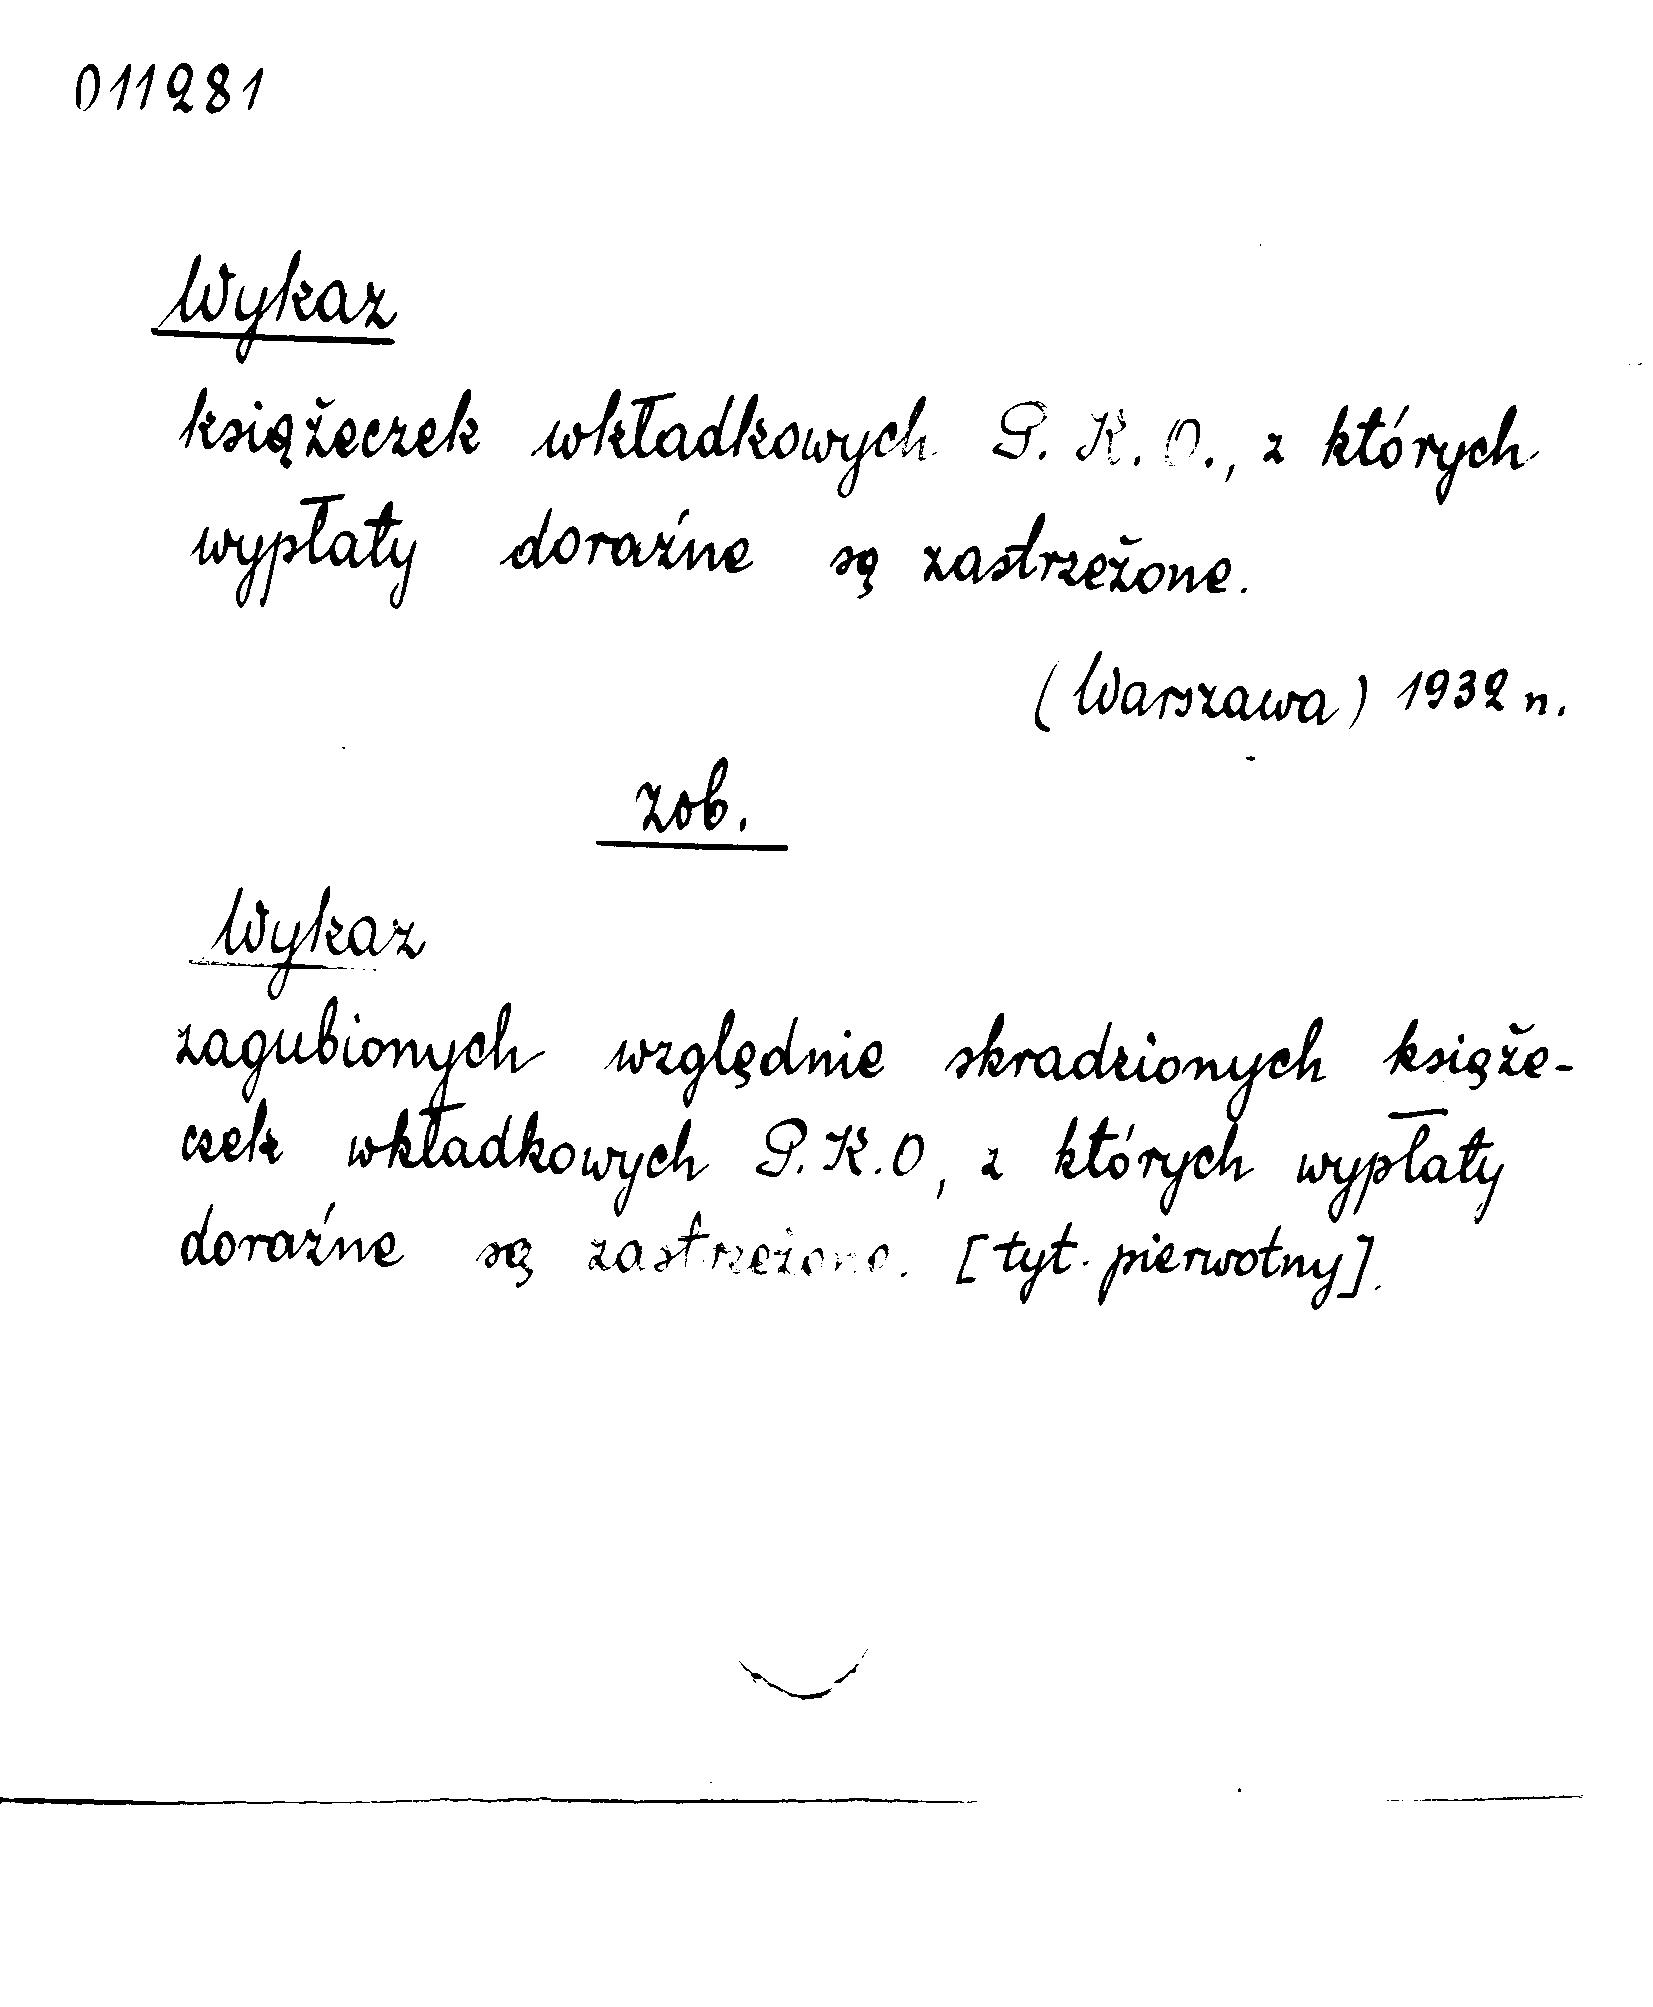 011281
Wykaz
książeczek wkładkowych P. K. O., z których
wypłaty doraźne są zastrzeżone.
(Warszawa) 1932 n.
zob.
Wykaz
zagubionych względnie skradzionych książe-
czek wkładkowych P.K.O, z których wypłaty
doraźne są zastrzeżone. [tyt. pierwotny].